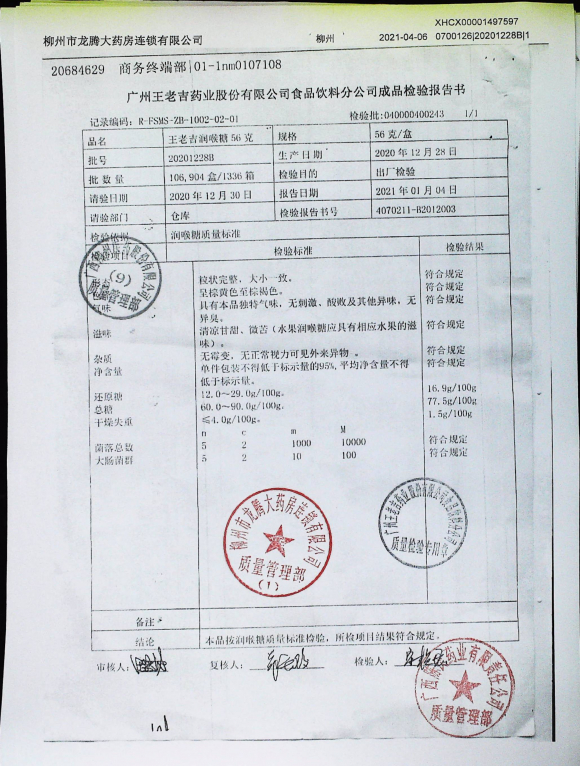 XHCX00001497597
柳州市龙腾大药房连锁有限公司 柳州 2021-04-06 0700126|20201228B|1
20684629 商务终端部|01-1nm0107108
广州王老吉药业股份有限公司食品饮料分公司成品检验报告书
记录编码: R-FSMS-ZB-1002-02-01 检验批:040000400243 1/1
品名 王老吉润喉糖56克 规格 56克/盒
批号 20201228B 生产日期 2020年12月28日
批数量 106,904盒/1336箱 检验目的 出厂检验
请验日期 2020年12月30日 报告日期 2021年01月04日
请验部门 仓库 检验报告书号 4070211-B2012003
检验依据 润喉糖质量标准
检验项目 检验标准 检验结果
粒状完整，大小一致。 符合规定
呈棕黄色至棕褐色。 符合规定
气味 具有本品独特气味，无刺激、酸败及其他异味，无 符合规定
异臭。
滋味 清凉甘甜、微苦（水果润喉糖应具有相应水果的滋 符合规定
味）。
杂质 无霉变，无正常视力可见外来异物。 符合规定
净含量 单件包装不得低于标示量的95%,平均净含量不得 符合规定
低于标示量。
还原糖 12.0～29.0g/100g。 16.9g/100g
总糖 60.0～90.0g/100g。 77.5g/100g
干燥失重 ≤4.0g/100g。 1.5g/100g
n c m M
菌落总数 5 2 1000 10000 符合规定
大肠菌群 5 2 10 100 符合规定
(9)
质量管理部
柳州市龙腾大药房连锁有限公司
质量管理部
(1)
广州王老吉药业股份有限公司食品饮料分公司
质量检验专用章
备注
结论 本品按润喉糖质量标准检验，所检项目结果符合规定。
审核人: 复核人: 检验人:
药业有限责任公司
质量管理部